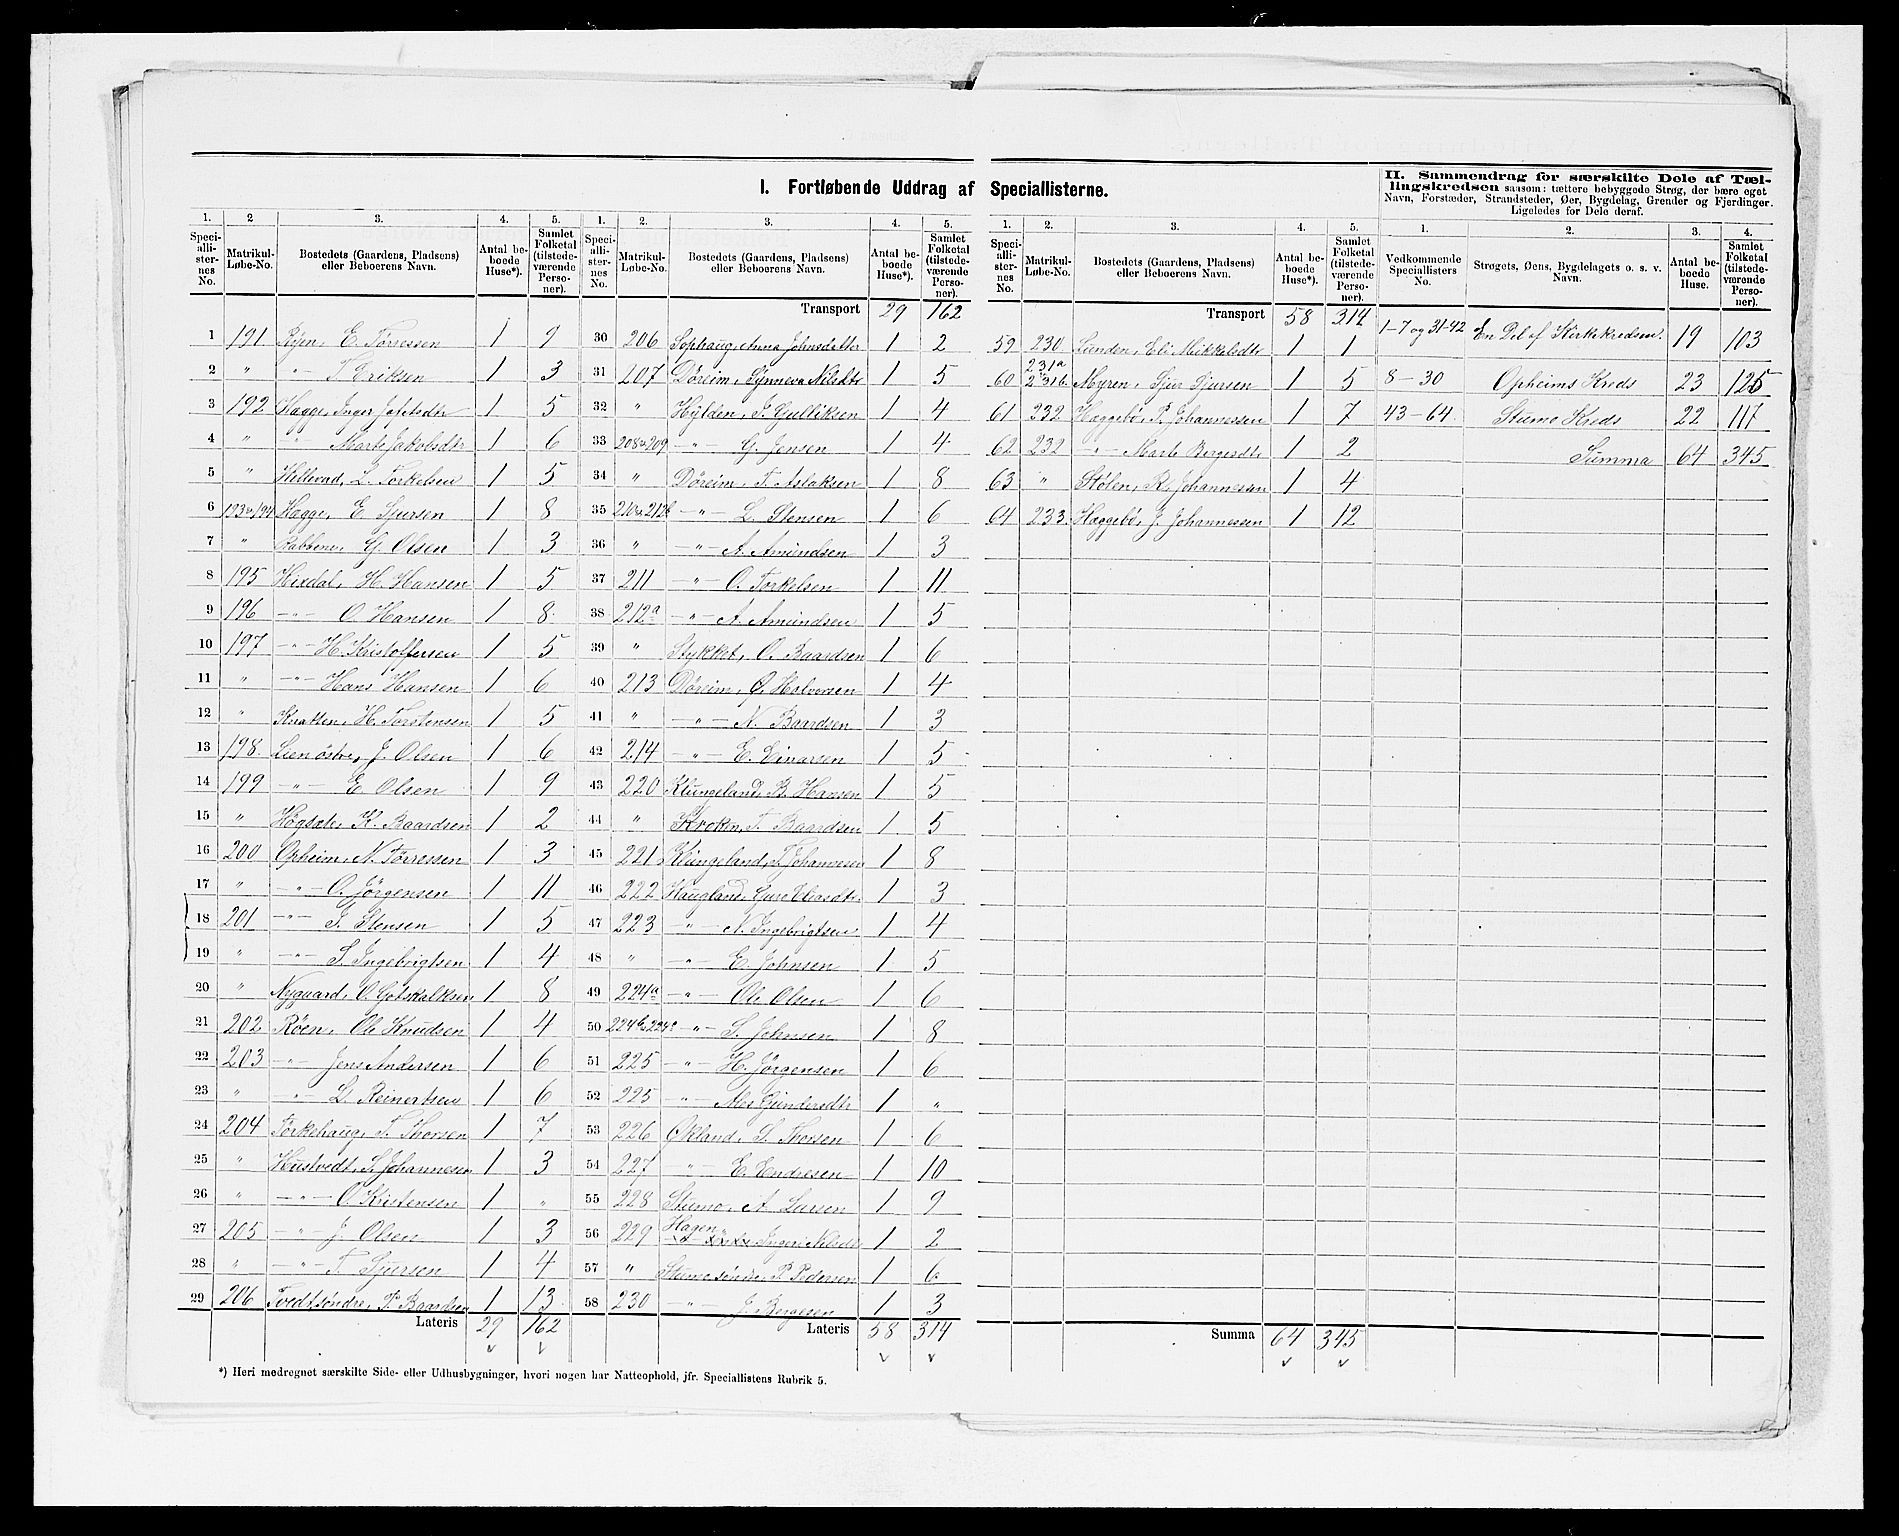 I. Fortløbende Uddrag af Speciallisterne.
II. Sammendrag for særskilte Dele af Tæl-
lingskredsen saasom: tættere bebyggede Strøg, der bære eget
Navn, Forstæder, Strandsteder, Øer, Bygdelag, Grender og Fjerdinger.
Ligeledes for Dele deraf.
1. 2 3. 4. 5.
Speciallisternes No. Matrikul-Løbe-No. Bostedets (Gaardens, Pladsens) eller Beboerens Navn. Antal beboede Huse*). Samlet Folketal (tilstedeværende Personer).
1 191 Röjen, E. Törressen 1 9
2 " " T. Eriksen 1 3
3 192 Hægge, Inger Jafetsdtr 1 5
4 " -"- Marte Jakobsdtr 1 6
5 " Hellevad, L. Torkelsen 1 5
6 193 & 194 Hægge, E. Sjursen 1 8
7 " Rabbene, G. Olsen 1 3
8 195 Hixdal, H. Hansen 1 5
9 196 -"- O. Hansen 1 8
10 197 -"- H. Kristoffersen 1 5
11 " -"- Hans Hansen 1 6
12 " Knatten, H. Torstensen 1 5
13 198. Lien östre, J. Olsen 1 6
14 199 -"- E. Olsen 1 9
15 " Högsæte, K. Baardsen 1 2
16 200 Opheim, N. Törressen 1 3
17 " -"- O. Jörgensen 1 11
18 201 -"- T. Stensen 1 5
19 " -"- S. Ingebrigtsen 1 4
20 " Nygaard, O. Gotskalksen 1 8
21 202 Röen, Ole Knudsen 1 4
22 203 -"- Jens Andersen 1 6
23 " -"- L. Reinertsen 1 6
24 204 Törkehaug, T. Thorsen 1 7
25 " Hustvedt, S. Johannesen 1 3
26 " -"- O. Kristensen 1 "
27 205 -"- J. Olsen 1 3
28 " -"- T. Sjursen 1 4
29 206 Tvedt söndre, P. Baardsen 1 13
Lateris 29 162
1. 2. 3. 4. 5.
Speciallisternes No. Matrikul-Løbe-No. Bostedets (Gaardens, Pladsens) eller Beboerens Navn. Antal beboede Huse*). Samlet Folketal (tilstedeværende Personer).
Transport 29 162
30 206 Sophaug, Anna Johnsdatter 1 2
31 207 Döreim, Synneva Nilsdtr 1 5
32 " Hylden, J. Gulliksen 1 4
33 208 & 209 -"- G. Jensen 1 4
34 " Döreim, T. Aslaksen 1 8
35 210 & 212b -"- L. Stensen 1 6
36 " -"- A. Amundsen 1 3
37 211 -"- O. Torkelsen 1 11
38 212a -"- A. Amundsen 1 5
39 " Stykket, O. Baardsen 1 6
40 213 Döreim, O. Halvorsen 1 4
41 " -"- N. Baardsen 1 3
42 214 -"- E. Einarsen 1 5
43 220 Klungeland, B. Hansen 1 5
44 " Kroken, T. Baardsen 1 5
45 221 Klungeland, T. Johannesen 1 8
46 222 Haugland, Guro Eliasdtr 1 3
47 223 -"- N. Ingebrigtsen 1 4
48 " -"- E. Johnsen 1 5
49 224a -"- Ole Olsen 1 6
50 224b & 224c -"- S. Johnsen 1 8
51 225 -"- H. Jörgensen 1 6
52 225 -"- Ales Gundersdtr 1 "
53 226 Økland, S. Thorsen 1 6
54 227 -"- E. Endresen 1 10
55 228 Stumo, A. Larsen 1 9
56 229 Hagen, Ingeri Nilsdtr 1 2
57 " Stumo söndre, P. Pedersen 1 6
58 230 -"- J. Bergesen 1 3
Lateris 58 314
1. 2. 3. 4. 5.
Speciallisternes No. Matrikul-Løbe-No. Bostedets (Gaardens, Pladsens) eller Beboerens Navn. Antal beboede Huse*). Samlet Folketal (tilstedeværende Personer).
Transport 58 314
59 230 Lunden, Eli Mikkelsdtr 1 1
60 231a 231b Myren, Sjur Sjursen 1 5
61 232 Hæggebö, P. Johannessen 1 7
62 232 -"- Marte Bergesdtr 1 2
63 " Stölen, R. Johannesen 1 4
64 233 Hæggebö, J. Johannessen 1 12
Summa 64 345
1. 2. 3. 4.
Vedkommende Speciallisters No. Strøgets, Øens, Bygdelagets o. s. v. Navn. Antal beboede Huse. Samlet Folketal (tilstedeværende Personer).
1-7 og 31-42 En Del af Kirkekredsen. 19 103
8-30 Opheims Kreds 23 125
43-64 Stumo Kreds 22 117
Summa 64 345
*) Heri medregnet særskilte Side- eller Udhusbygninger, hvori nogen har Natteophold, jfr. Speciallistens Rubrik 5.